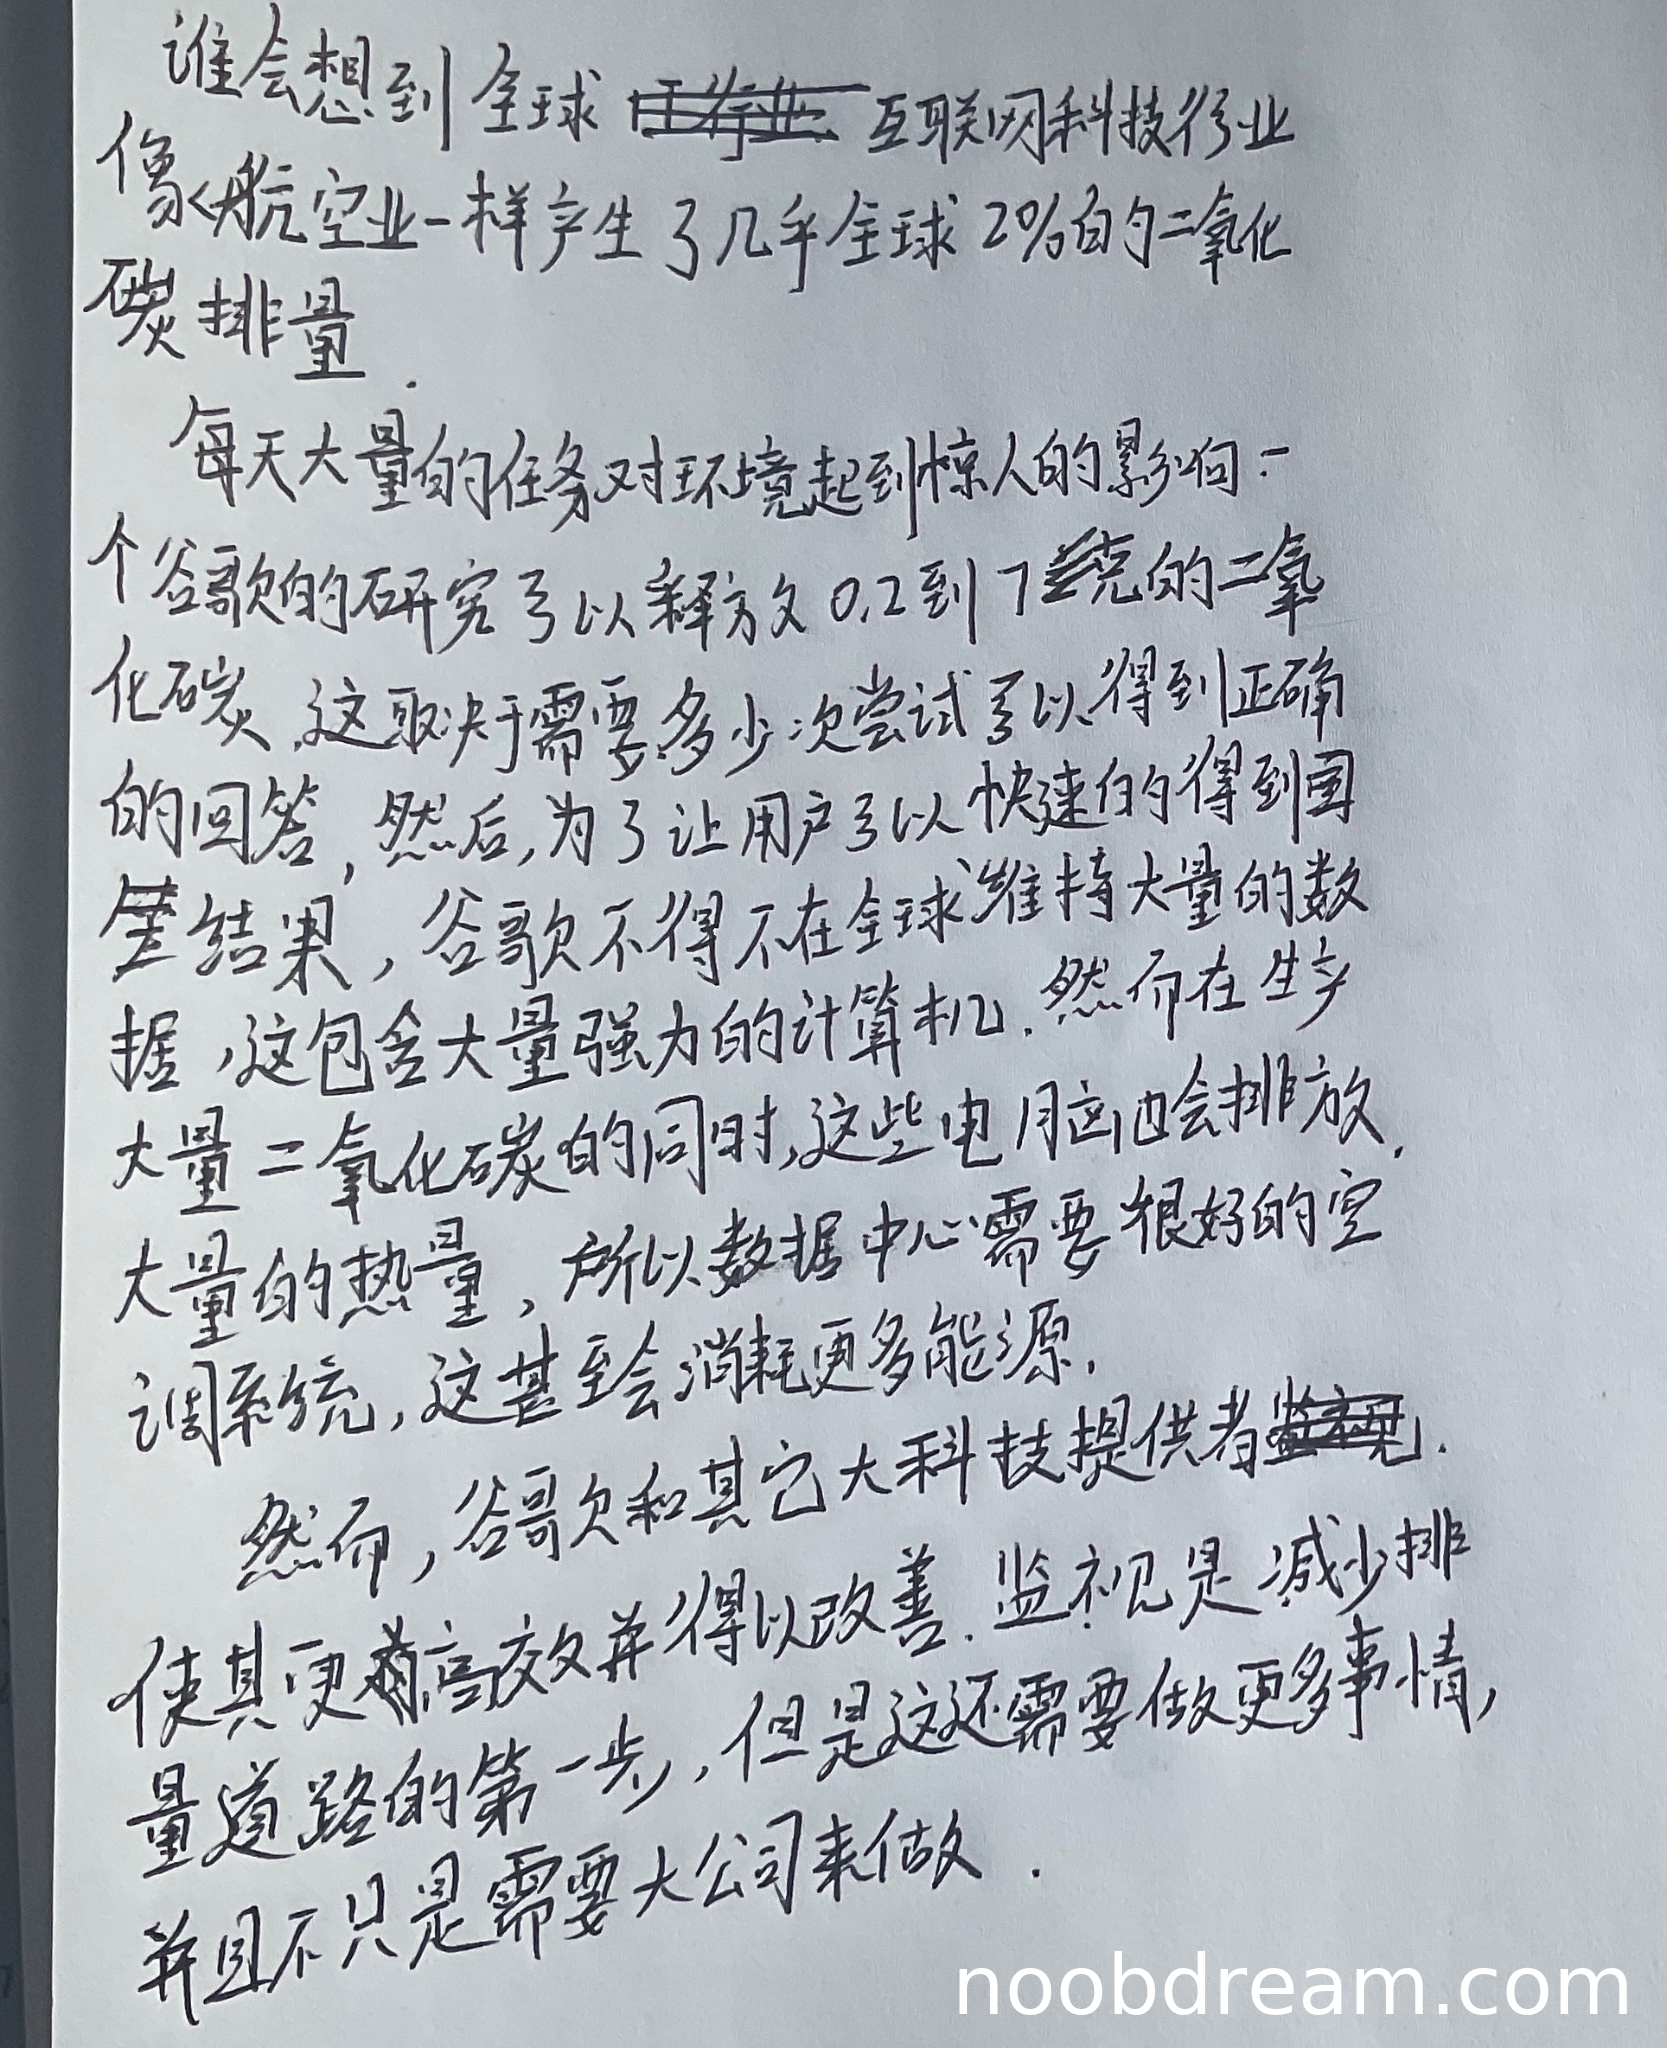 谁会想到全球互联网科技行业
像航空业一样产生了几乎全球2%的二氧化
碳排量.
每天大量的任务对环境起到惊人的影响:一
个谷歌的研究可以释放0.2到7克的二氧
化碳,这取决于需要多少次尝试可以得到正确
的回答,然后,为了让用户可以快速的得到回
答结果,谷歌不得不在全球维持大量的数
据,这包含大量强力的计算机.然而在生产
大量二氧化碳的同时,这些电脑也会排放
大量的热量,所以数据中心需要很好的空
调系统,这甚至会消耗更多能源.
然而,谷歌和其它大科技提供者.
使其更高效并得以改善.监视是减少排
量道路的第一步,但是这还需要做更多事情,
并且不只是需要大公司来做.
noobdream.com